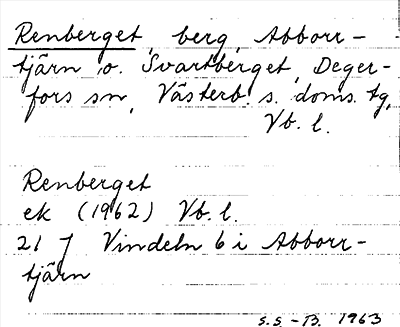 Renberget, berg, Abborr-
tjärn o. Svartberget, Deger-
fors sn, Västerb. s. doms. tg,
Vb. l.
Renberget
ek (1962) Vb. l.
21 J Vindeln 6 i Abborr-
tjärn
S.S.-B. 1963